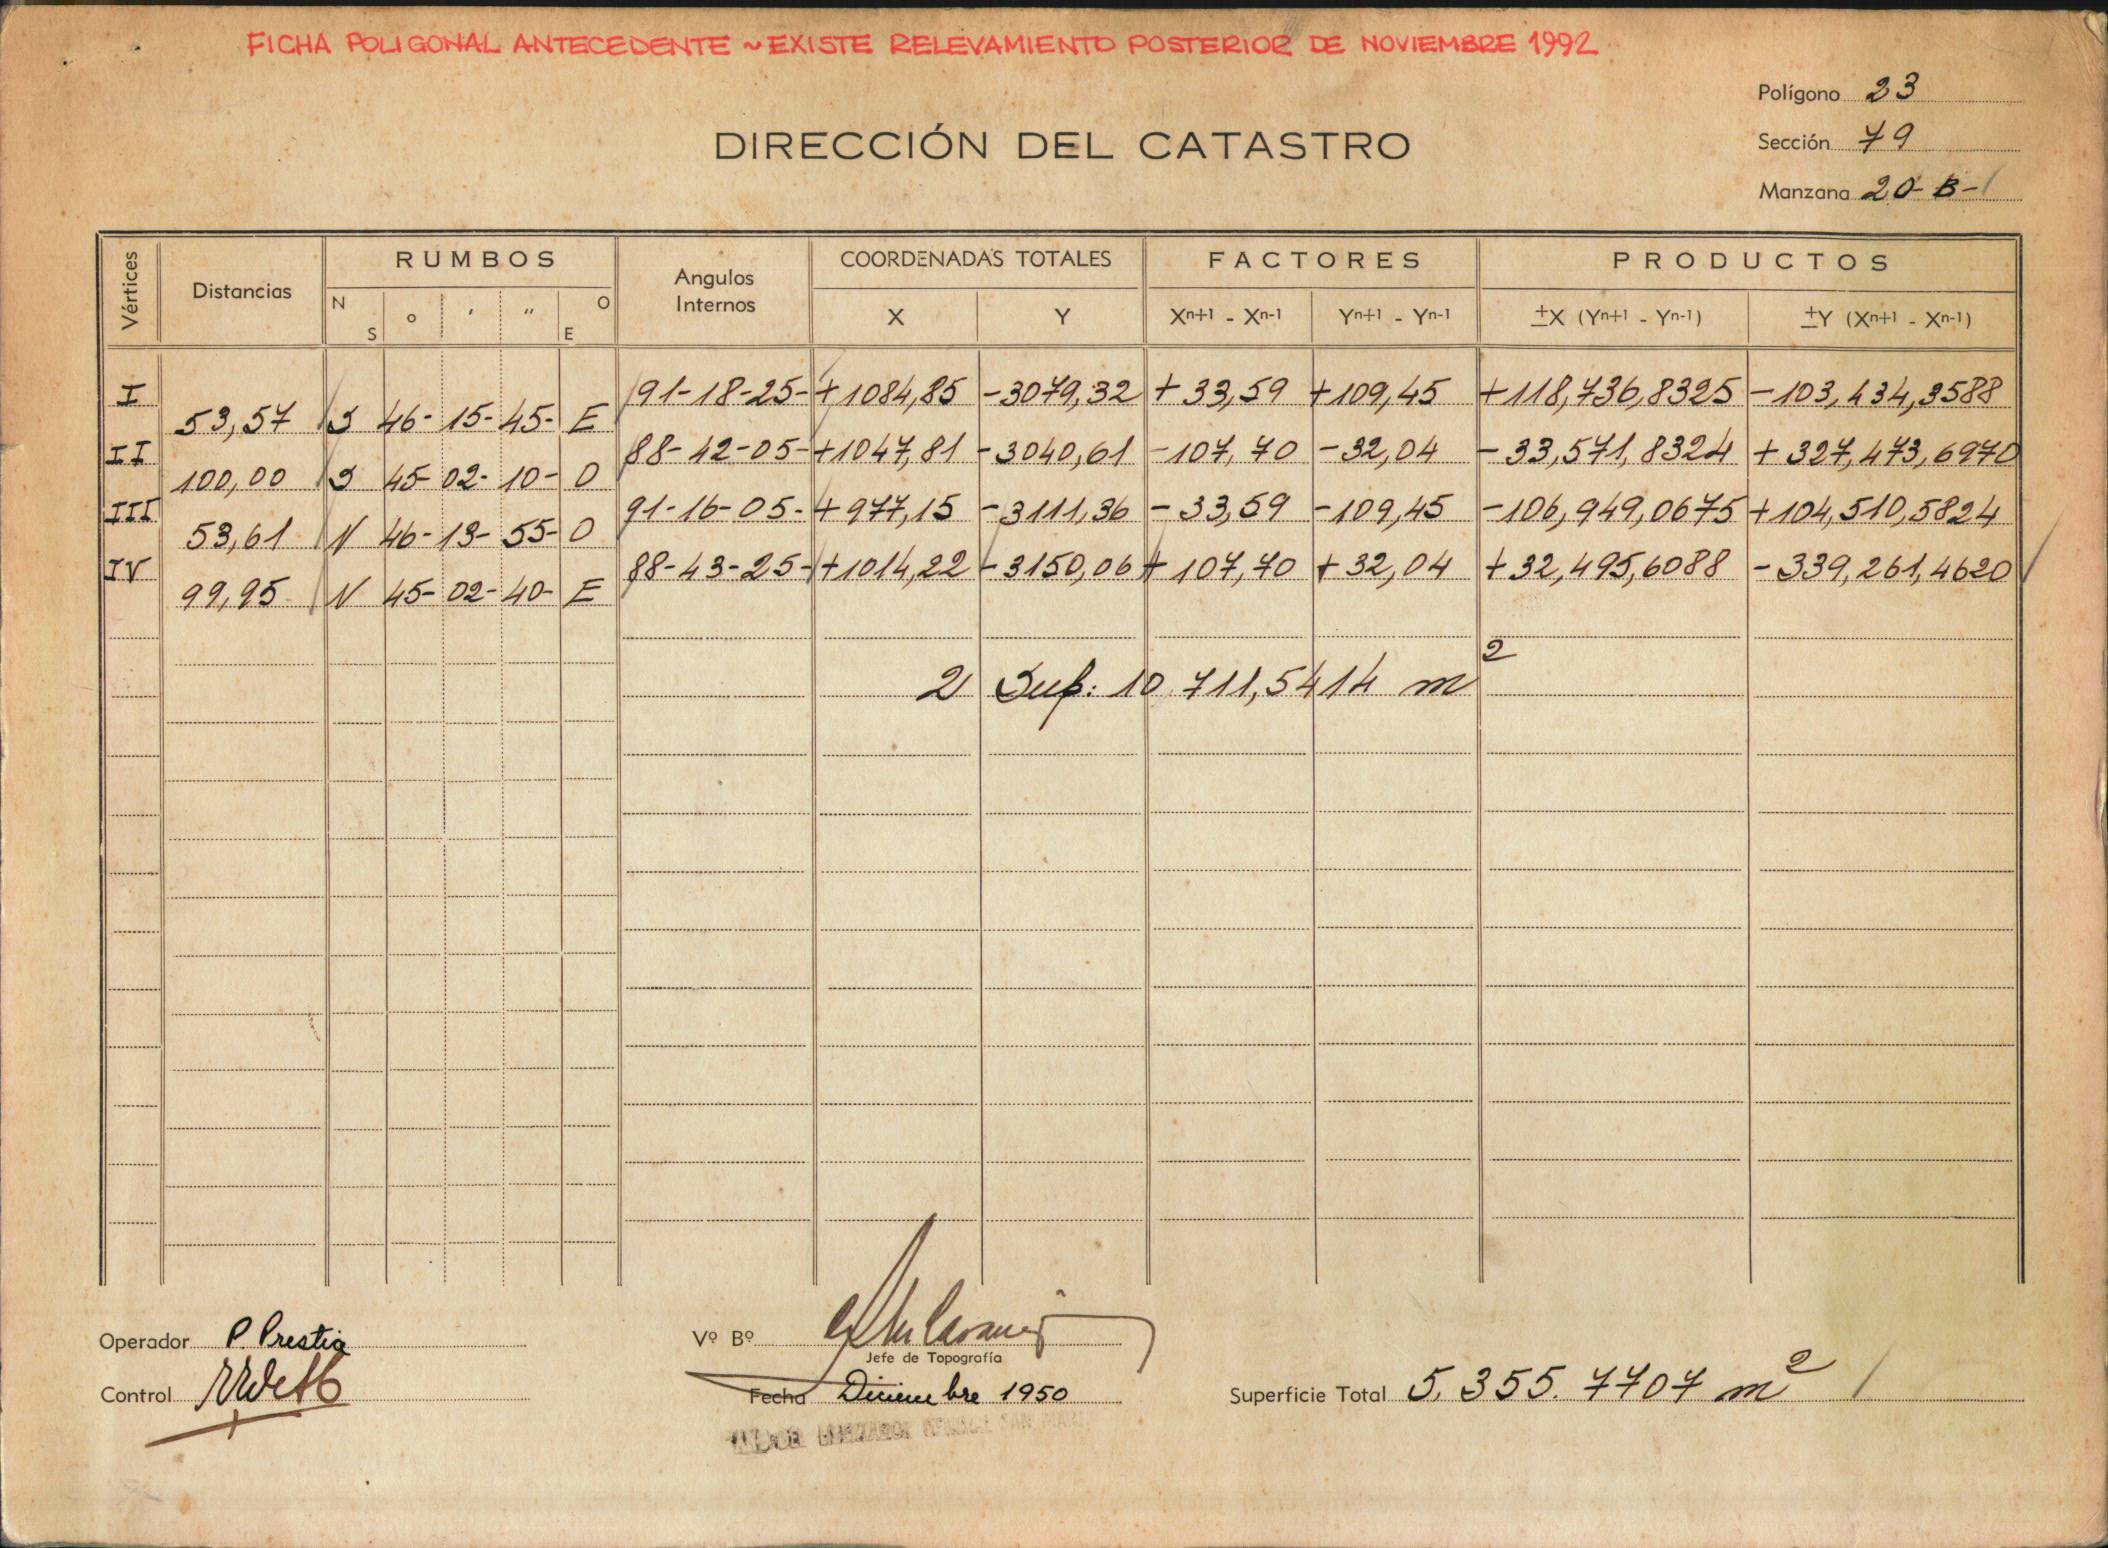 FICHA POLIGONAL ANTECEDENTE ~ EXISTE RELEVAMIENTO POSTERIOR DE NOVIEMBRE 1992
Polígono 23
DIRECCIÓN DEL CATASTRO
Sección 79
Manzana 20-B-
Vértices Distancias RUMBOS Angulos Internos COORDENADAS TOTALES FACTORES PRODUCTOS
N S ° ′ ″ O E X Y Xn+1 - Xn-1 Yn+1 - Yn-1 ±X (Yn+1 - Yn-1) ±Y (Xn+1 - Xn-1)
I 91-18-25- +1084,85 -3079,32 +33,59 +109,45 +118,736,8325 -103,434,3588
53,57 S 46- 15- 45- E
II 88-42-05- +1047,81 -3040,61 -107,70 -32,04 -33,571,8324 +327,473,6970
100,00 S 45- 02- 10- O
III 91-16-05- +977,15 -3111,36 -33,59 -109,45 -106,949,0675 +104,510,5824
53,61 N 46- 13- 55- O
IV 88-43-25- +1014,22 -3150,06 +107,70 +32,04 +32,495,6088 -339,261,4620
99,95 N 45- 02- 40- E
2 Sup: 10.711,5414 m²
Operador P. Prestia
Vº Bº
Jefe de Topografía
Control
Fecha Diciembre 1950
Superficie Total 5.355.7707 m²